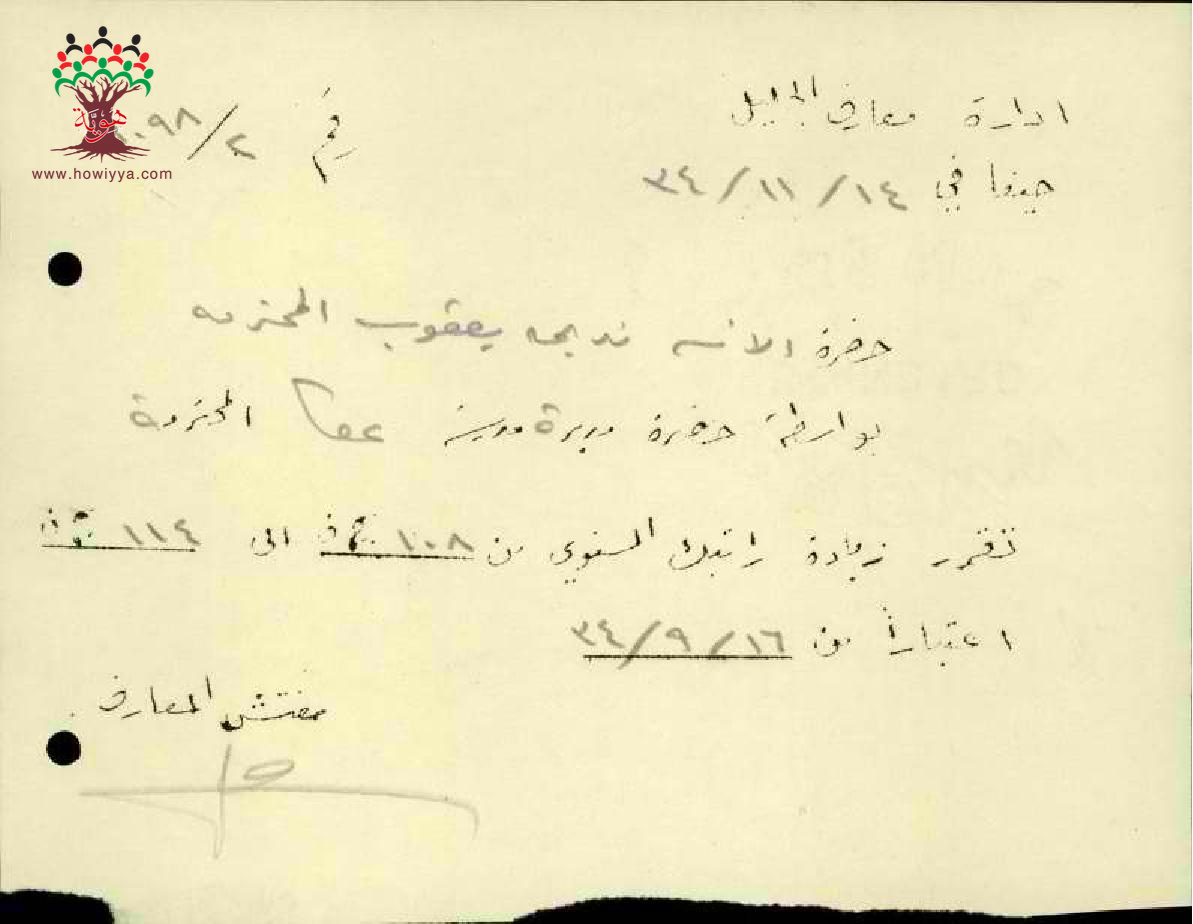 هوية
www.howiyya.com
ادارة معارف الجليل
رقم ٢/٠٩٨
حيفا في ١٤/١١/٣٤
حضرة الانسه نديمه يعقوب المحترمه
بواسطة حضرة مديرة مدرسة عكا المحترمة
تقرر زيادة راتبك السنوي من ١٠٨ الى ١١٤
اعتباراً من ١٦/٩/٣٤
مفتش المعارف